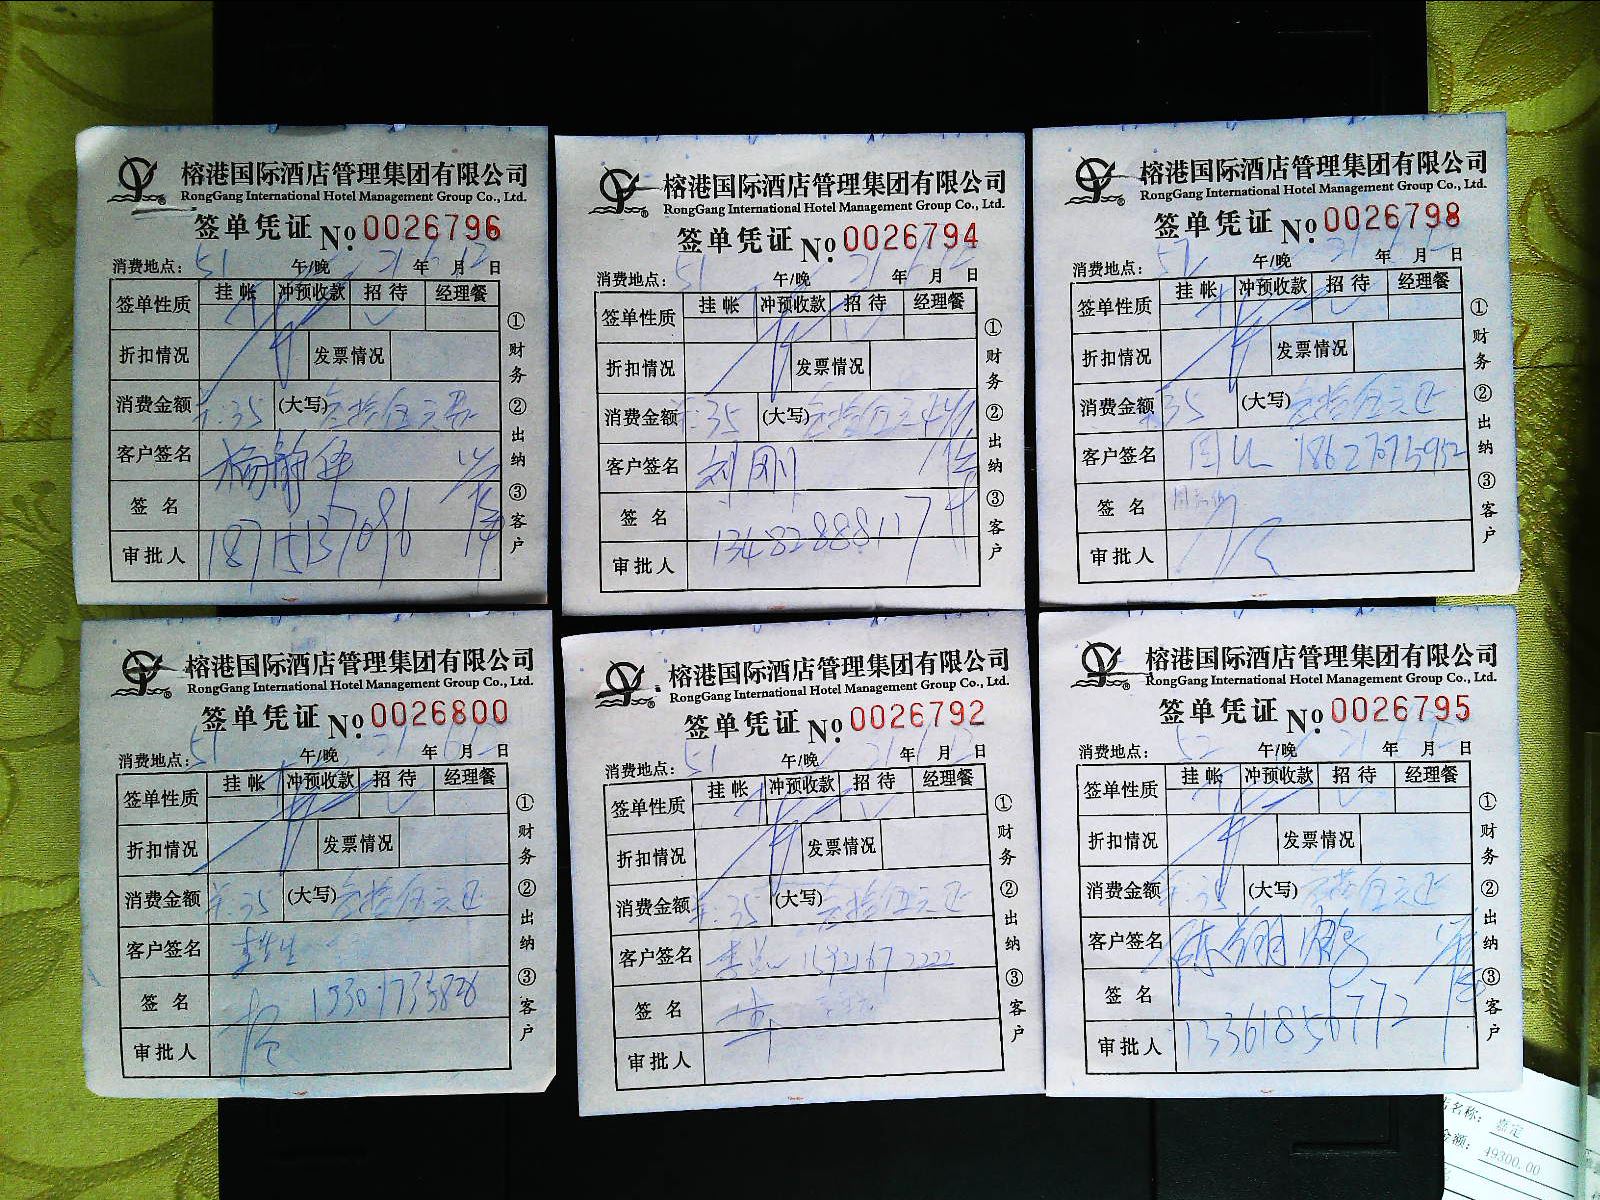 榕港国际酒店管理集团有限公司
RongGang International Hotel Management Group Co., Ltd.
签单凭证 No. 0026796
消费地点: 51 午/晚 21 年 6 月 12 日
签单性质 挂帐 冲预收款 招待 经理餐
折扣情况 发票情况
消费金额 35 (大写) 叁拾伍元
客户签名 杨静华
签名
审批人 18715137096
①财务②出纳③客户
榕港国际酒店管理集团有限公司
RongGang International Hotel Management Group Co., Ltd.
签单凭证 No. 0026794
消费地点: 51 午/晚 21 年 6 月 12 日
签单性质 挂帐 冲预收款 招待 经理餐
折扣情况 发票情况
消费金额 35 (大写) 叁拾伍元
客户签名 刘刚
签名 13482888117
审批人
①财务②出纳③客户
榕港国际酒店管理集团有限公司
RongGang International Hotel Management Group Co., Ltd.
签单凭证 No. 0026798
消费地点: 52 午/晚 21 年 月 日
签单性质 挂帐 冲预收款 招待 经理餐
折扣情况 发票情况
消费金额 35 (大写) 叁拾伍元正
客户签名 18627075952
签名
审批人
①财务②出纳③客户
榕港国际酒店管理集团有限公司
RongGang International Hotel Management Group Co., Ltd.
签单凭证 No. 0026800
消费地点: 51 午/晚 21 年 6 月 日
签单性质 挂帐 冲预收款 招待 经理餐
折扣情况 发票情况
消费金额 35 (大写) 叁拾伍元正
客户签名
签名
审批人
①财务②出纳③客户
榕港国际酒店管理集团有限公司
RongGang International Hotel Management Group Co., Ltd.
签单凭证 No. 0026792
消费地点: 51 午/晚 21 年 6 月 12 日
签单性质 挂帐 冲预收款 招待 经理餐
折扣情况 发票情况
消费金额 35 (大写) 叁拾伍元正
客户签名
签名
审批人
①财务②出纳③客户
榕港国际酒店管理集团有限公司
RongGang International Hotel Management Group Co., Ltd.
签单凭证 No. 0026795
消费地点: 52 午/晚 21 年 月 日
签单性质 挂帐 冲预收款 招待 经理餐
折扣情况 发票情况
消费金额 35 (大写) 叁拾伍元正
客户签名
签名
审批人 13361856772
①财务②出纳③客户
名称: 嘉定
金额: 49300.00